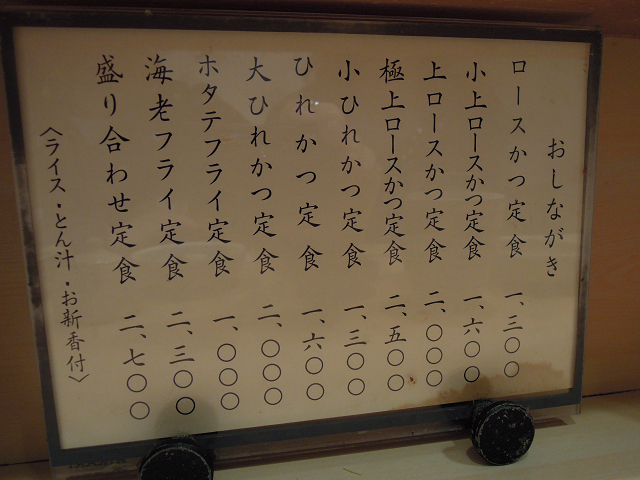 おしながき
ロースかつ定食 一、三〇〇
小上ロースかつ定食 一、六〇〇
上ロースかつ定食 二、〇〇〇
極上ロースかつ定食 二、五〇〇
小ひれかつ定食 一、三〇〇
ひれかつ定食 一、六〇〇
大ひれかつ定食 二、〇〇〇
ホタテフライ定食 一、〇〇〇
海老フライ定食 二、三〇〇
盛り合わせ定食 二、七〇〇
〈ライス・とん汁・お新香付〉